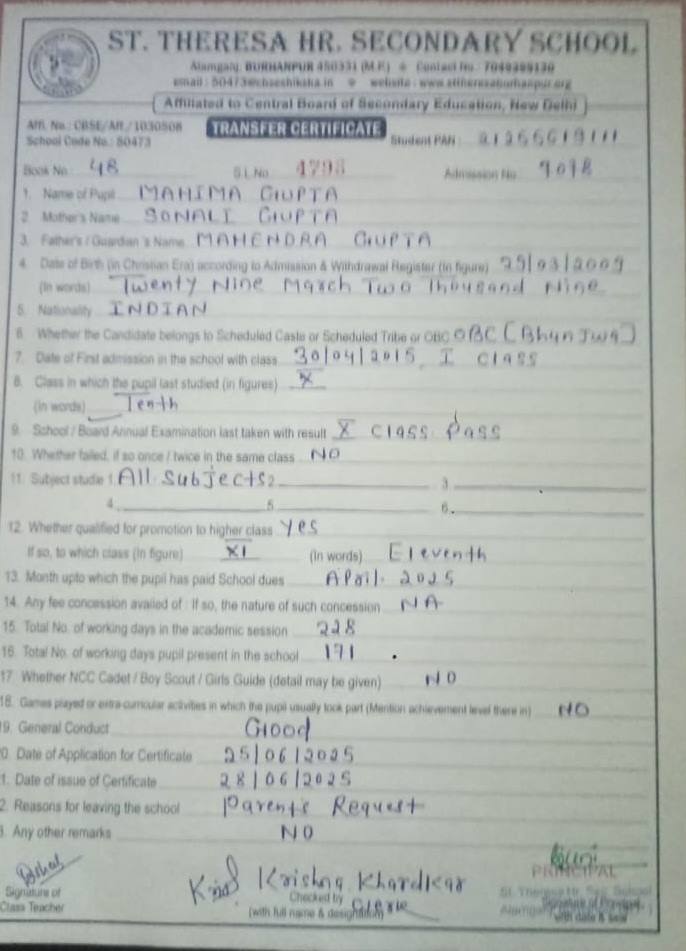 ST. THERESA HR. SECONDARY SCHOOL
Alamganj, BURHANPUR 450331 (M.P.) Contact No.: 7049399130
email : 50473@cbseshiksha.in website : www.sttheresaburhanpur.org
Affiliated to Central Board of Secondary Education, New Delhi
Affi. No.: CBSE/Aff./1030508
TRANSFER CERTIFICATE
School Code No.: 50473 Student PAN :
Book No.: 48 S.L.No. 4798 Admission No. 9078
1. Name of Pupil MAHIMA GUPTA
2. Mother's Name SONALI GUPTA
3. Father's / Guardian's Name MAHENDRA GUPTA
4. Date of Birth (in Christian Era) according to Admission & Withdrawal Register (in figure) 29/03/2009
(In words) Twenty Nine March Two Thousand Nine
5. Nationality INDIAN
6. Whether the Candidate belongs to Scheduled Caste or Scheduled Tribe or OBC OBC (Bhunjwa)
7. Date of First admission in the school with class 30/04/2015, I class
8. Class in which the pupil last studied (in figures) X
(in words) Tenth
9. School / Board Annual Examination last taken with result X class Pass
10. Whether failed, if so once / twice in the same class NO
11. Subject studie 1. All Subjects 2 3
4. 5 6.
12. Whether qualified for promotion to higher class yes
If so, to which class (in figure) XI (In words) Eleventh
13. Month upto which the pupil has paid School dues April. 2025
14. Any fee concession availed of : If so, the nature of such concession NA
15. Total No. of working days in the academic session 228
16. Total No. of working days pupil present in the school 171
17. Whether NCC Cadet / Boy Scout / Girls Guide (detail may be given) NO
18. Games played or extra-curricular activities in which the pupil usually took part (Mention achievement level there in) NO
9. General Conduct Good
0. Date of Application for Certificate 25/06/2025
1. Date of issue of Certificate 28/06/2025
2. Reasons for leaving the school Parent's Request
3. Any other remarks NO
Krishna Khardkar
PRINCIPAL
Signature of
Class Teacher
Checked by Clerk
(with full name & designation)
St. Theresa Hr. Sec. School
Signature of Principal
with date & seal